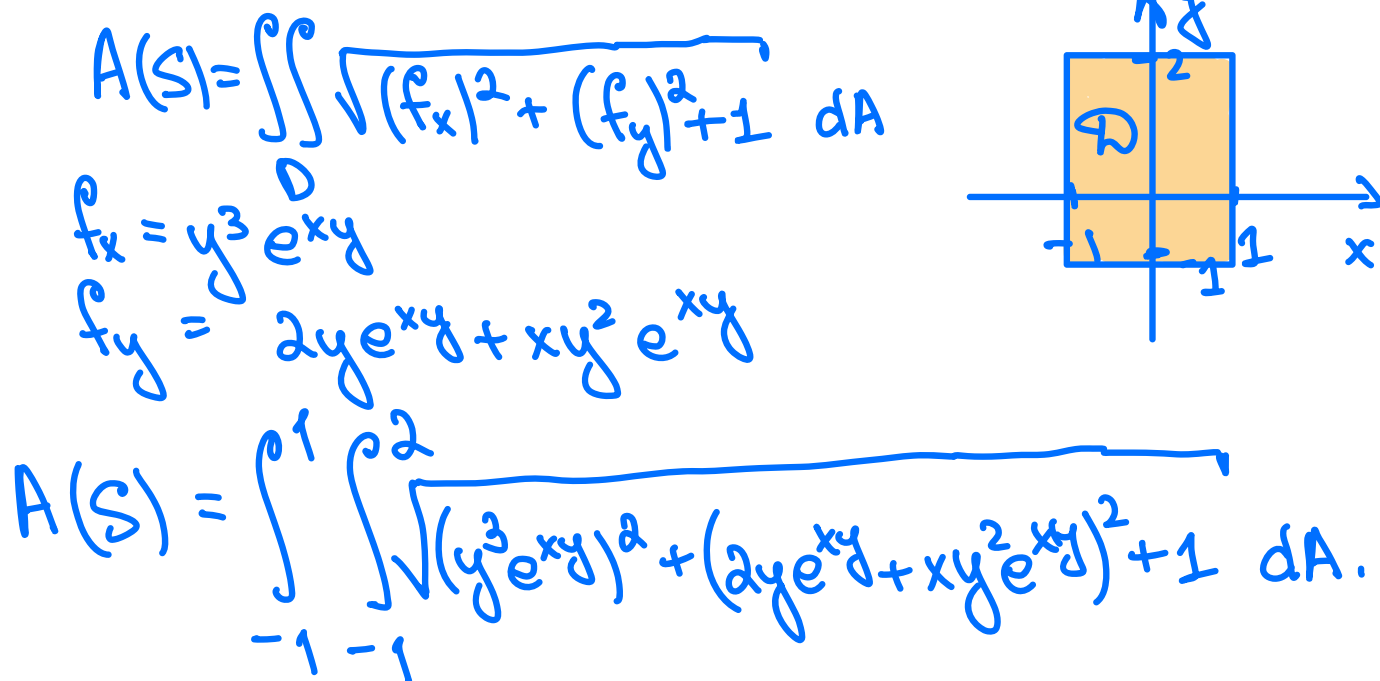 A(S) = ∬_D √((f_x)² + (f_y)² + 1) dA
f_x = y³ e^{xy}
f_y = 2y e^{xy} + xy² e^{xy}
A(S) = ∫_{-1}^{1} ∫_{-1}^{2} √((y³ e^{xy})² + (2y e^{xy} + xy² e^{xy})² + 1) dA.
y
2
D
-1
1
x
-1